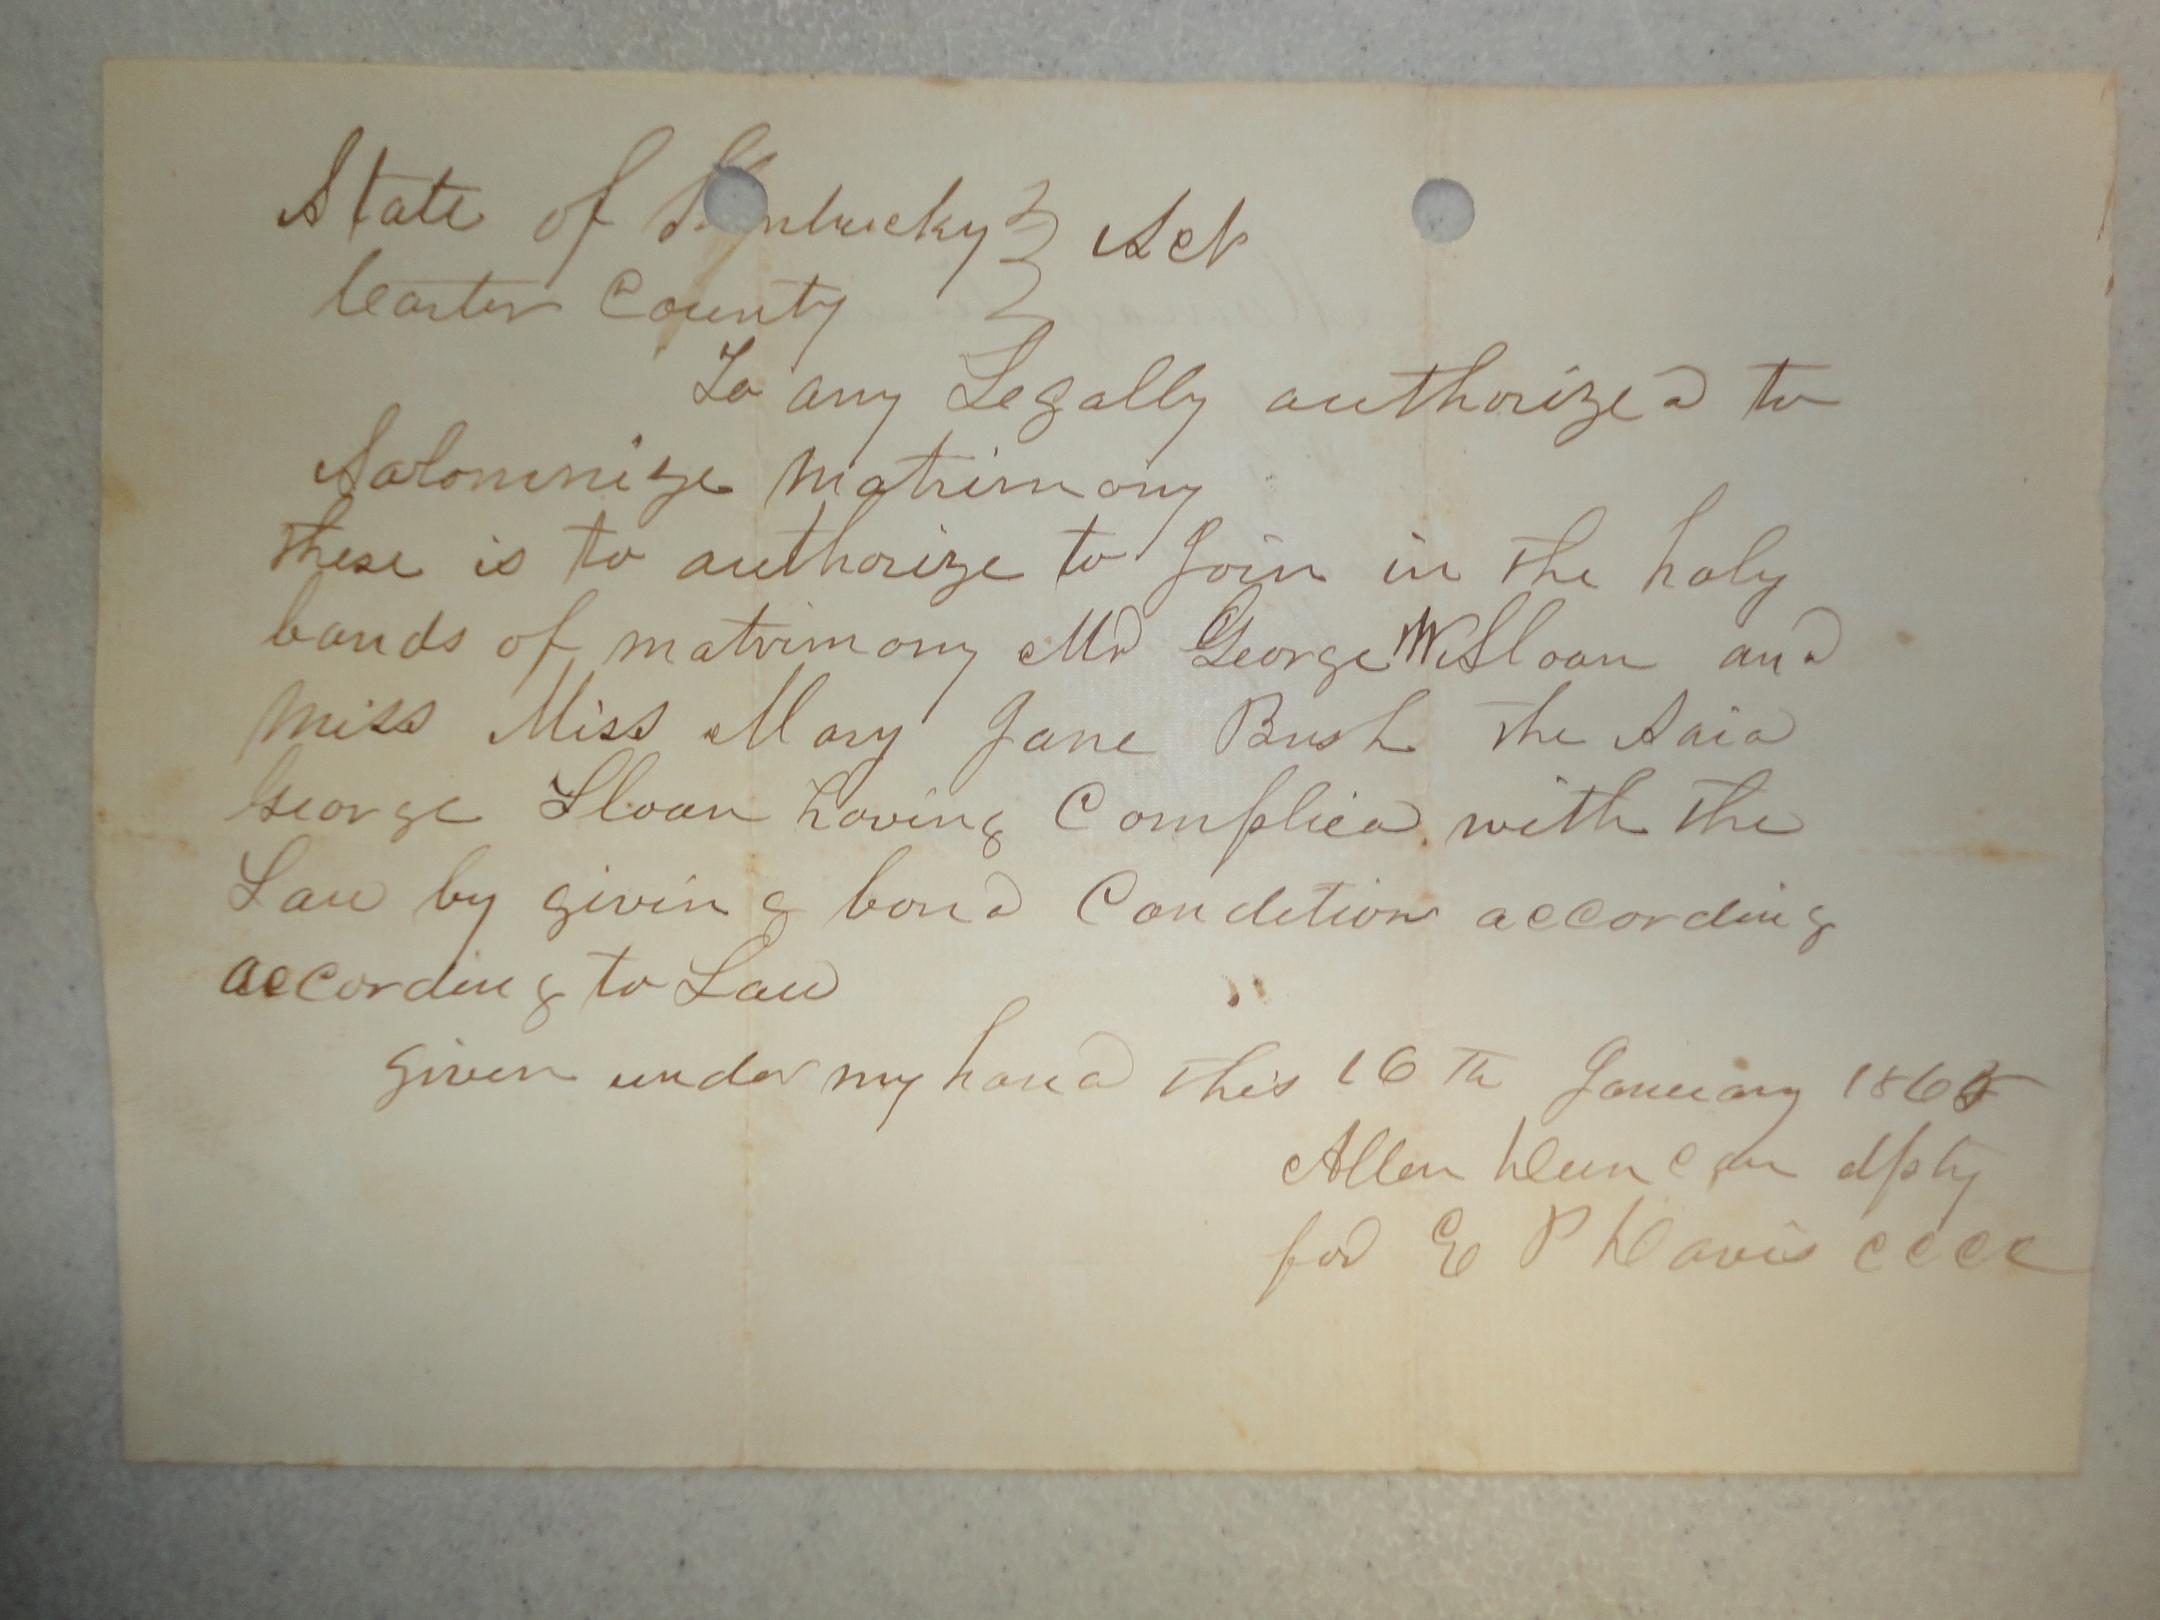 State of Kentucky } Sct
Carter County }
To any Legally authorized to
Solomnize matrimony
these is to authorize to Join in the holy
bonds of matrimony Mr George W Sloan and
Miss Miss Mary Jane Bush the Said
George Sloan having Complied with the
Law by giving bond Condition according
according to Law
given under my hand this 16th January 1865
Allen Duncan dpty
for E P Davis CCCC